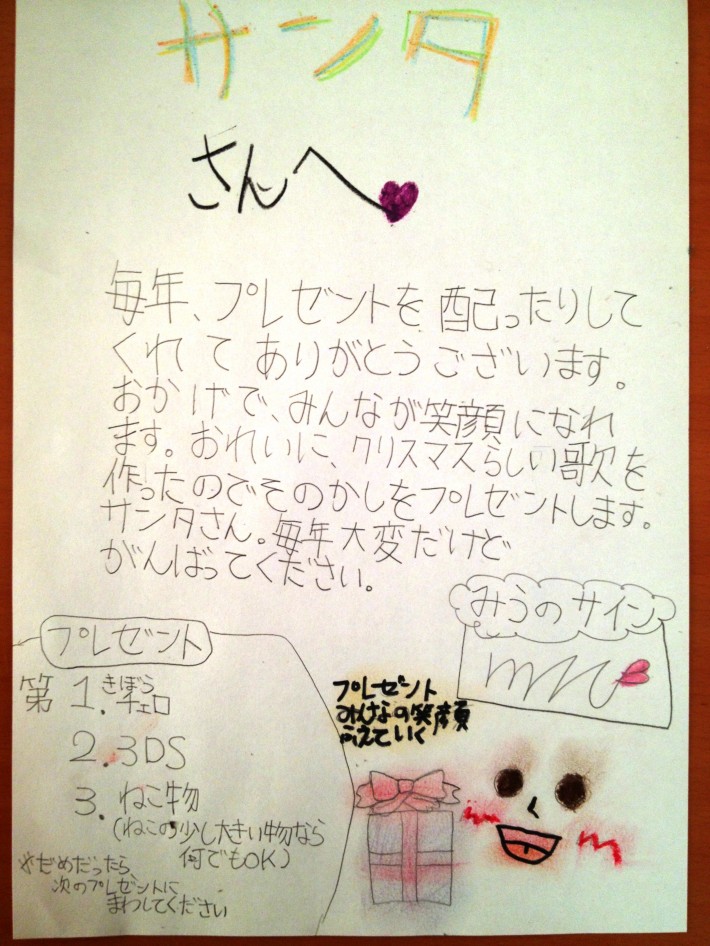 サンタ
さんへ
毎年、プレゼントを配ったりして
くれてありがとうございます。
おかげで、みんなが笑顔になれ
ます。おれいに、クリスマスらしい歌を
作ったのでそのかしをプレゼントします。
サンタさん。毎年大変だけど
がんばってください。
みうのサイン
プレゼント
第1.チェロ
2.3DS
3.ねこ物
(ねこの少し大きい物なら
何でもOK)
※だめだったら、
次のプレゼントに
まわしてください
プレゼント
みんなの笑顔
ふえていく